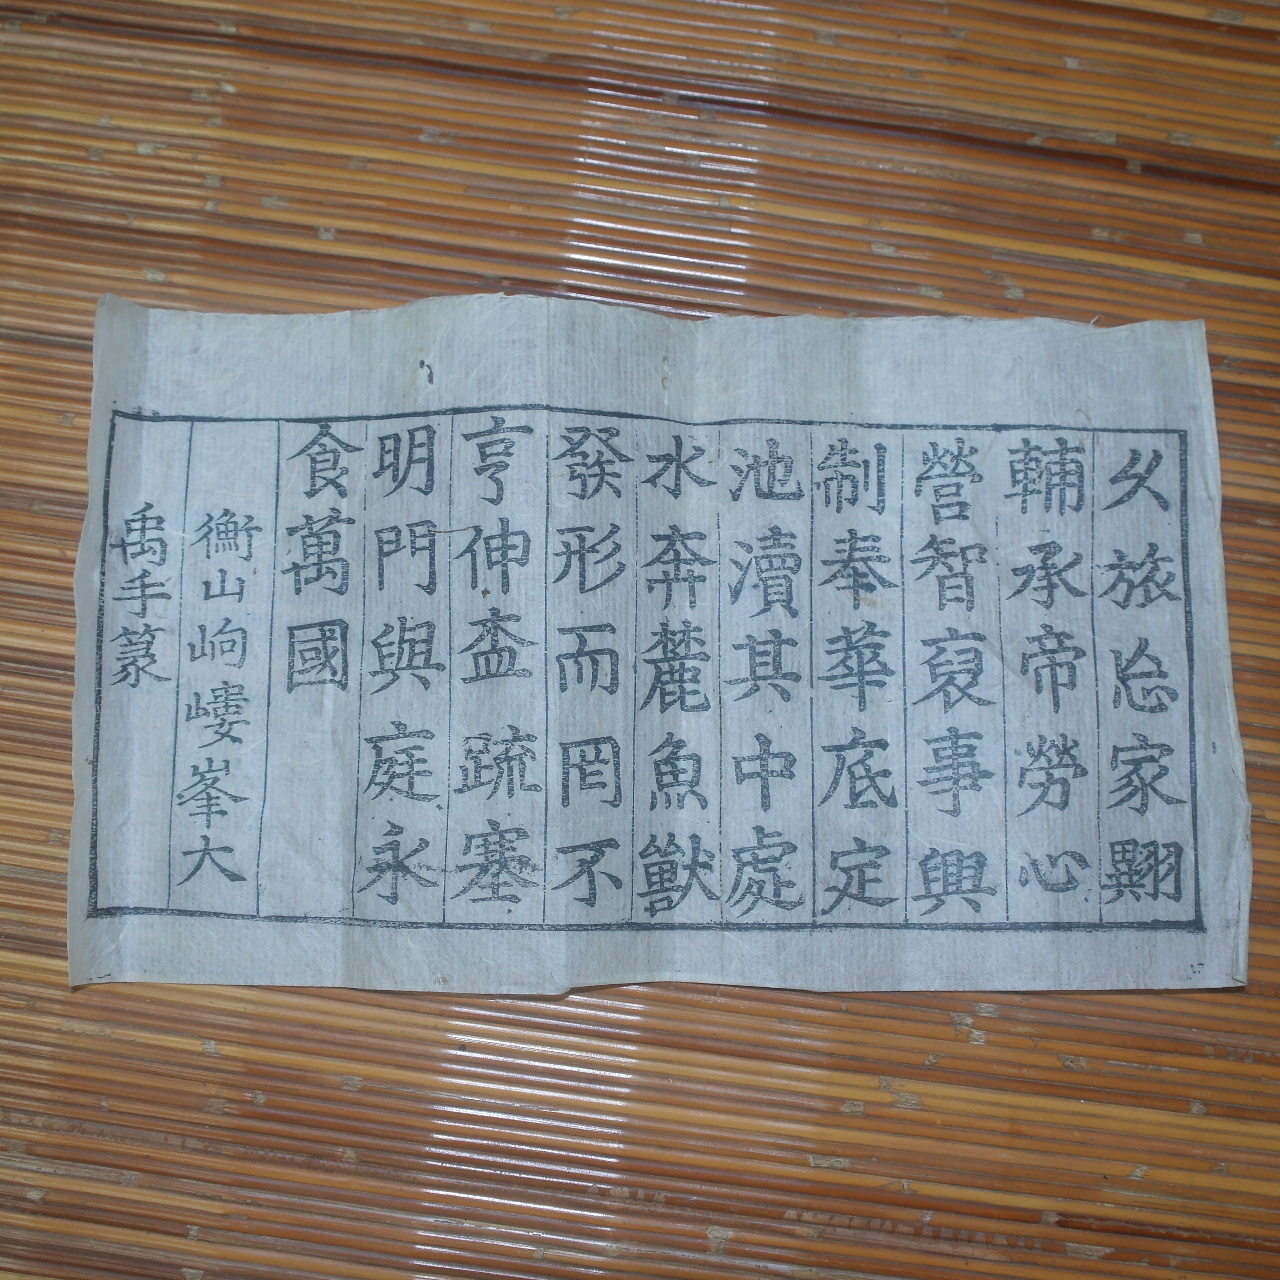 久旅忘家翾
輔承帝勞心
營智裒事興
制奉華底定
池瀆其中處
水奔麓魚獸
發形而罔不
亨伸盍疏塞
明門與庭永
食萬國
衡山岣嶁峯大
禹手篆